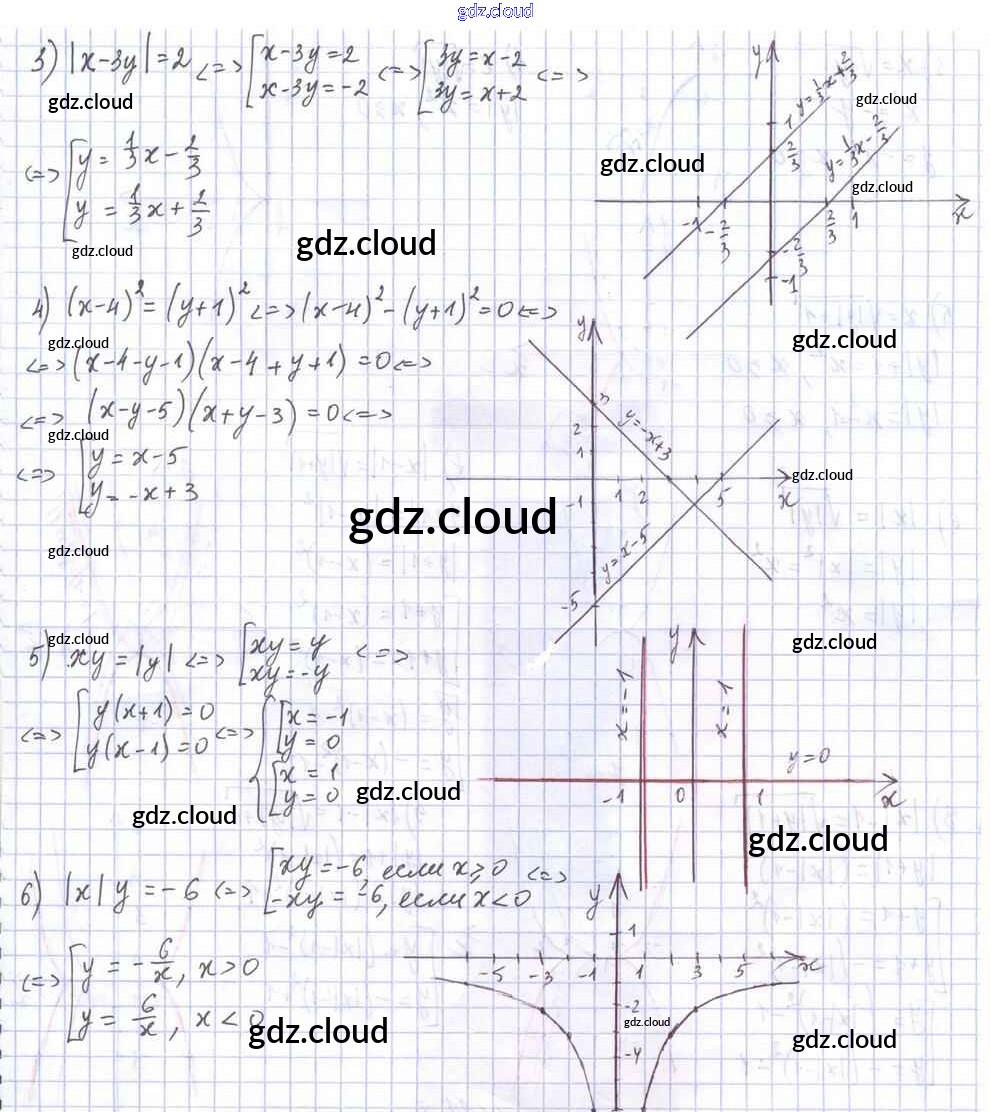 gdz.cloud
3) |x-3y|=2 <=> [x-3y=2 <=> [3y=x-2 <=>
x-3y=-2 3y=x+2
gdz.cloud
<=> [y=1/3x-2/3
y=1/3x+2/3
gdz.cloud
gdz.cloud
y
y=1/3x+2/3
gdz.cloud
1
2/3
y=1/3x-2/3
gdz.cloud
gdz.cloud
-1 -2/3 2/3 1 x
-2/3
-1
gdz.cloud
4) (x-4)²=(y+1)² <=> (x-4)²-(y+1)²=0 <=>
gdz.cloud
<=> (x-4-y-1)(x-4+y+1)=0 <=>
<=> (x-y-5)(x+y-3)=0 <=>
gdz.cloud
<=> [y=x-5
y=-x+3
gdz.cloud
gdz.cloud
y
3
y=-x+3
2
1
gdz.cloud
-1 1 2 5 x
y=x-5
-5
gdz.cloud
gdz.cloud
5) xy=|y| <=> [xy=y <=>
xy=-y
<=> [y(x+1)=0 <=> {[x=-1
y(x-1)=0 y=0
[x=1
y=0
gdz.cloud
gdz.cloud
y
x=-1 x=-1
y=0
-1 0 1 x
gdz.cloud
6) |x|y=-6 <=> [xy=-6, если x≥0 <=>
-xy=-6, если x<0
<=> [y=-6/x, x>0
y=6/x, x<0
gdz.cloud
y
1
-5 -3 -1 1 3 5 x
-2
gdz.cloud
-4
gdz.cloud